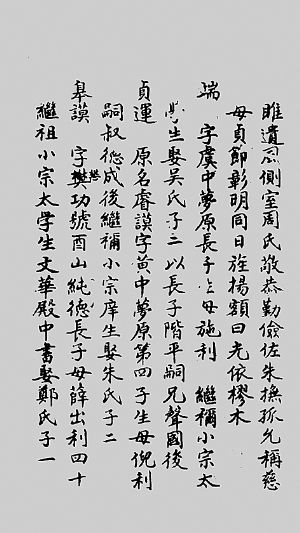 雎遺忍側室周氏敬恭勤儉佐朱撫孤允稱慈
母貞節彰明同日旌揚額曰光依樛木
端 字虞中夢原長子生母施利 繼禰小宗太
學生娶吳氏子二以長子階平嗣兄聲國後
貞運 原名睿謨字黄中夢原第四子生母倪利
嗣叔德成後繼禰小宗庠生娶朱氏子二
皋謨 字懋功號酉山純德長子母薛出利四十
繼祖小宗太学生文華殿中書娶鄭氏子一